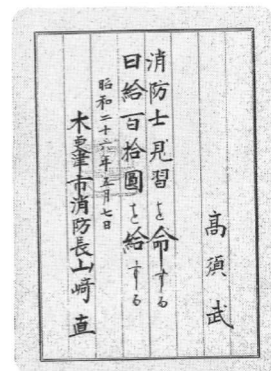 高須武
消防士見習を命ずる
日給百拾圓を給する
昭和二十六年五月七日
木更津市消防長山﨑直